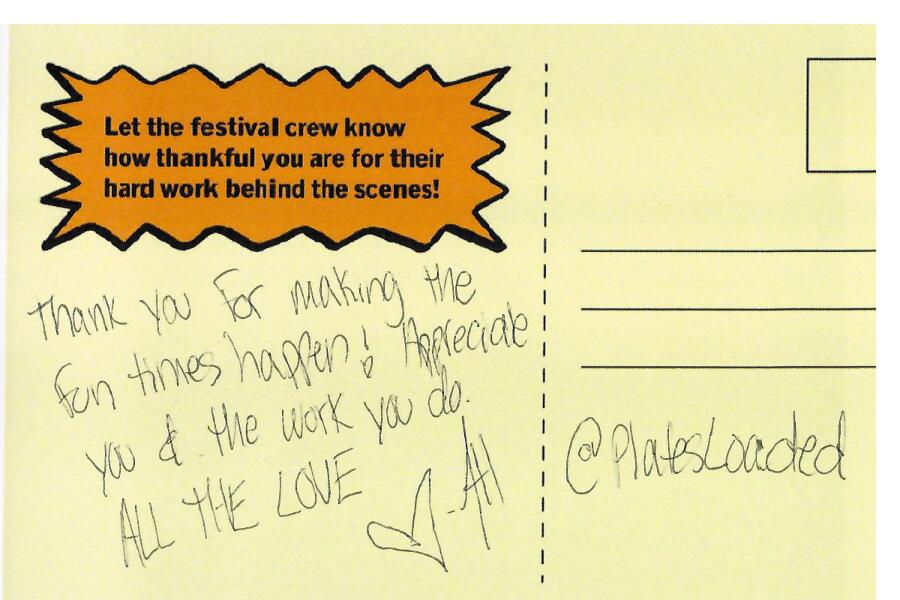 Let the festival crew know
how thankful you are for their
hard work behind the scenes!
Thank you for making the
fun times happen! Appreciate
you & the work you do.
ALL THE LOVE
@PlatesLoaded